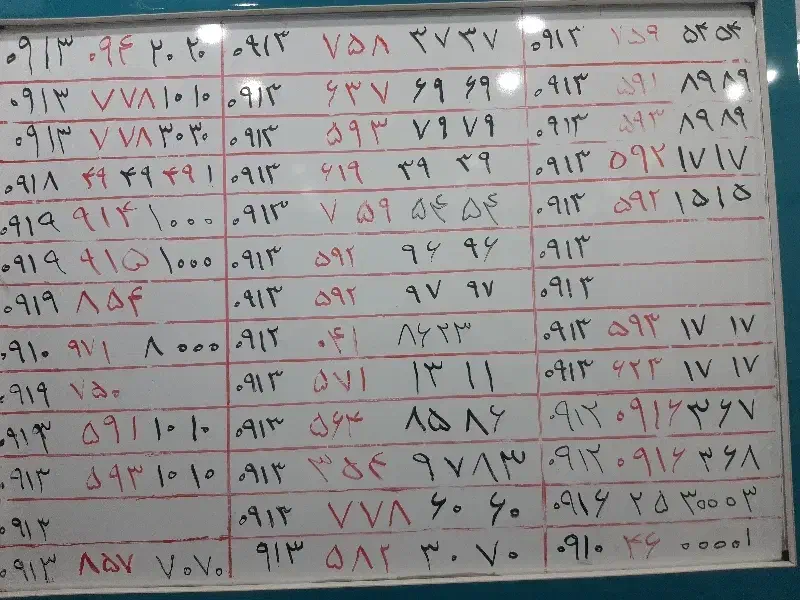 ۰۹۱۳ ۰۹۴ ۲۰ ۲۰ ۰۹۱۳ ۷۵۸ ۳۷۳۷ ۰۹۱۳ ۷۵۹ ۵۴۵۴
۰۹۱۳ ۷۷۸ ۱۰۱۰ ۰۹۱۳ ۶۳۷ ۶۹ ۶۹ ۰۹۱۳ ۵۹۱ ۸۹۸۹
۰۹۱۳ ۷۷۸ ۳۰۳۰ ۰۹۱۳ ۵۹۳ ۷۹۷۹ ۰۹۱۳ ۵۹۳ ۸۹۸۹
۰۹۱۸ ۴۹ ۴۹ ۴۹ ۱ ۰۹۱۳ ۶۱۹ ۳۹ ۳۹ ۰۹۱۳ ۵۹۲ ۱۷۱۷
۰۹۱۹ ۹۱۴ ۱۰۰۰ ۰۹۱۳ ۷ ۵۹ ۵۴ ۵۴ ۰۹۱۳ ۵۹۲ ۱۵۱۵
۰۹۱۹ ۹۱۵ ۱۰۰۰ ۰۹۱۳ ۵۹۲ ۹۶ ۹۶ ۰۹۱۳
۰۹۱۹ ۸۵۴ ۰۹۱۳ ۵۹۲ ۹۷ ۹۷ ۰۹۱۳
۰۹۱۰ ۹۷۱ ۸ ۰۰۰ ۰۹۱۲ ۰۴۱ ۸۶۲۳ ۰۹۱۳ ۵۹۳ ۱۷ ۱۷
۰۹۱۹ ۷۵۰ ۰۹۱۳ ۵۷۱ ۱۳ ۱۱ ۰۹۱۳ ۶۲۳ ۱۷ ۱۷
۰۹۱۳ ۵۹۱ ۱۰ ۱۰ ۰۹۱۳ ۵۶۴ ۸۵۸۶ ۰۹۱۲ ۰۹۱۶ ۳۶۷
۰۹۱۳ ۵۹۳ ۱۰۱۰ ۰۹۱۳ ۳۵۴ ۹۷۸۳ ۰۹۱۲ ۰۹۱۶ ۳۶۸
۰۹۱۳ ۰۹۱۳ ۷۷۸ ۶۰ ۶۰ ۰۹۱۶ ۲۵ ۳۰۰۰۳
۰۹۱۳ ۸۵۷ ۷۰۷۰ ۹۱۳ ۵۸۲ ۳۰ ۷۰ ۰۹۱۰ ۴۶ ۰۰۰۰۱